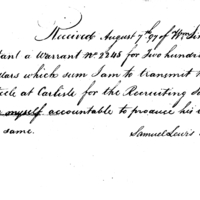 Received August 7th 97 of Wm Sim
tant a Warrant No. 2245 for Two hundred
lars which sum I am to transmit
at Carlisle for the Recruiting
myself accountable to produce his
same.
Samuel Lewis